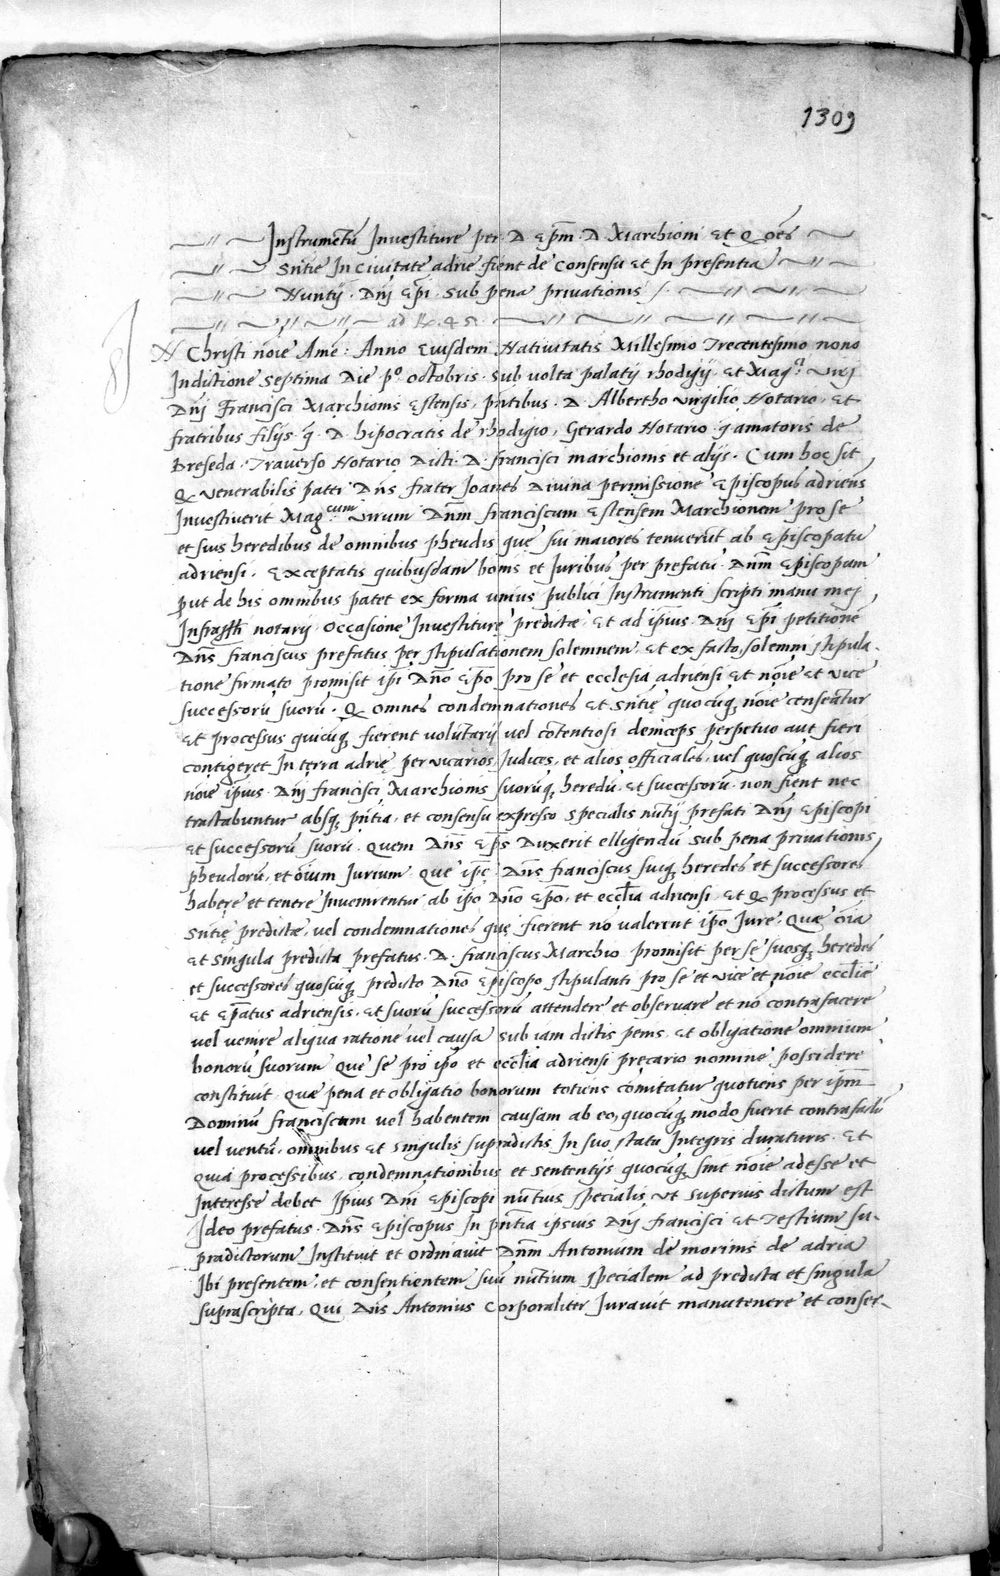 1309
Instrumentū Investiture per D Ep̄m D Marchioni et q̄ oēs
sn̄tie In Civitate adrie fient de Consensu et In presentia
Nuntij Dn̄j Ep̄i sub pena privationis
IN Christi nōie Amē: Anno Eiusdem Nativitatis Millesimo Trecentesimo nono
Indictione septima Die pº octobris sub volta palatij rhodigij et Magci Virj
Dn̄j Francisci Marchionis Estensis, pn̄tibus D Albertho virgilio Notario, et
fratribus filijs q̄ D hipocratis de rhodigio, Gerardo Notario q̄ amatoris de
Traverso Notario Dicti D francisci marchionis et alijs. Cum hoc sit,
q̄ venerabilis pater Dn̄s frater Joanēs Divina permissione Episcopus adriens̄
Investiverit Magcum virum Dn̄m franciscum Estensem Marchionem pro se
et suis heredibus de omnibus pheudis que sui maiores tenuerūt ab Episcopatu
adriensi, Exceptatis quibusdam bonis et Juribus per prefatū Dn̄m Episcopum
put de his omnibus patet ex forma unius publici Instrumenti scripti manu mej
Infrascrīti notarij occasione Investiture predictæ, et ad ip̄ius Dn̄j Ep̄i petitionē
Dn̄s franciscus prefatus per stipulationem solemnem, et ex facto, solemni stipula-
tione firmato promisit ip̄i Dn̄o Ep̄o pro se et ecclesia adriensi et nōie et vice
successorū suorū q̄ omnes condemnationes et sn̄tię quocūq̨ nōie censeātur
et processus quicūq̨ fierent volūtarij vel cōtentiosi deinceps perpetuo aut fieri
contigeret In terra adrię per vicarios, Judices, et alios officiales, vel quoscūq̨ alios
nōie ip̄ius Dn̄j francisci Marchionis suorūq̨ heredū, et successorū non fient nec
tractabuntur absq̨ pn̄tia, et consensu expresso specialis nūtij prefati Dn̄j Episcopi
et successorū suorū quem Dn̄s Ep̄s Duxerit elligendū sub pena privationis,
pheudorū, et oīum Jurium que ip̄e Dn̄s franciscus suiq̨ heredes et successores
habere et tenere Invenirentur ab ip̄o Dn̄o Ep̄o, et eccl̄ia adriensi, et q̄ processus et
sn̄tię predictæ, vel condemnationes quę fierent nō valerent ip̄o Jure, Quæ oīa
et singula predicta prefatus D. franciscus Marchio promisit per se suosq̨ heredes
et successores quoscūq̨ predicto Dn̄o Episcopo stipulanti pro se et vice et nōie eccl̄ie
et Ep̄atus adriensis, et suorū successorū attendere et observare et nō contrafacere
vel venire aliqua ratione vel causa sub iam dictis penis, et obligatione omnium
bonorū suorum que se pro ip̄o et eccl̄ia adriensi precario nomine possidere
constituit, quæ pena et obligatio bonorum totiens comitatur quotiens per ip̄m
Dominū franciscum vel habentem causam ab eo, quocūq̨ modo fuerit contrafactū
vel ventū, omnibus et singulis supradictis In suo statu Integris duraturis. Et
quia processibus, condemnationibus et sententijs quocūq̨ sint nōie adesse et
Interesse debet Ipius Dn̄i Episcopi nuntius specialis ut superius dictum est
Ideo prefatus Dn̄s Episcopus In pn̄tia ipsius Dn̄j francisci et Testium su-
pradictorum Instituit et ordinavit Dn̄m Antonium de morinis de adria
Ibi presentem, et consentientem suū nūtium specialem ad predicta et singula
suprascripta, Qui Dn̄s Antonius Corporaliter Juravit manutenere et conser-